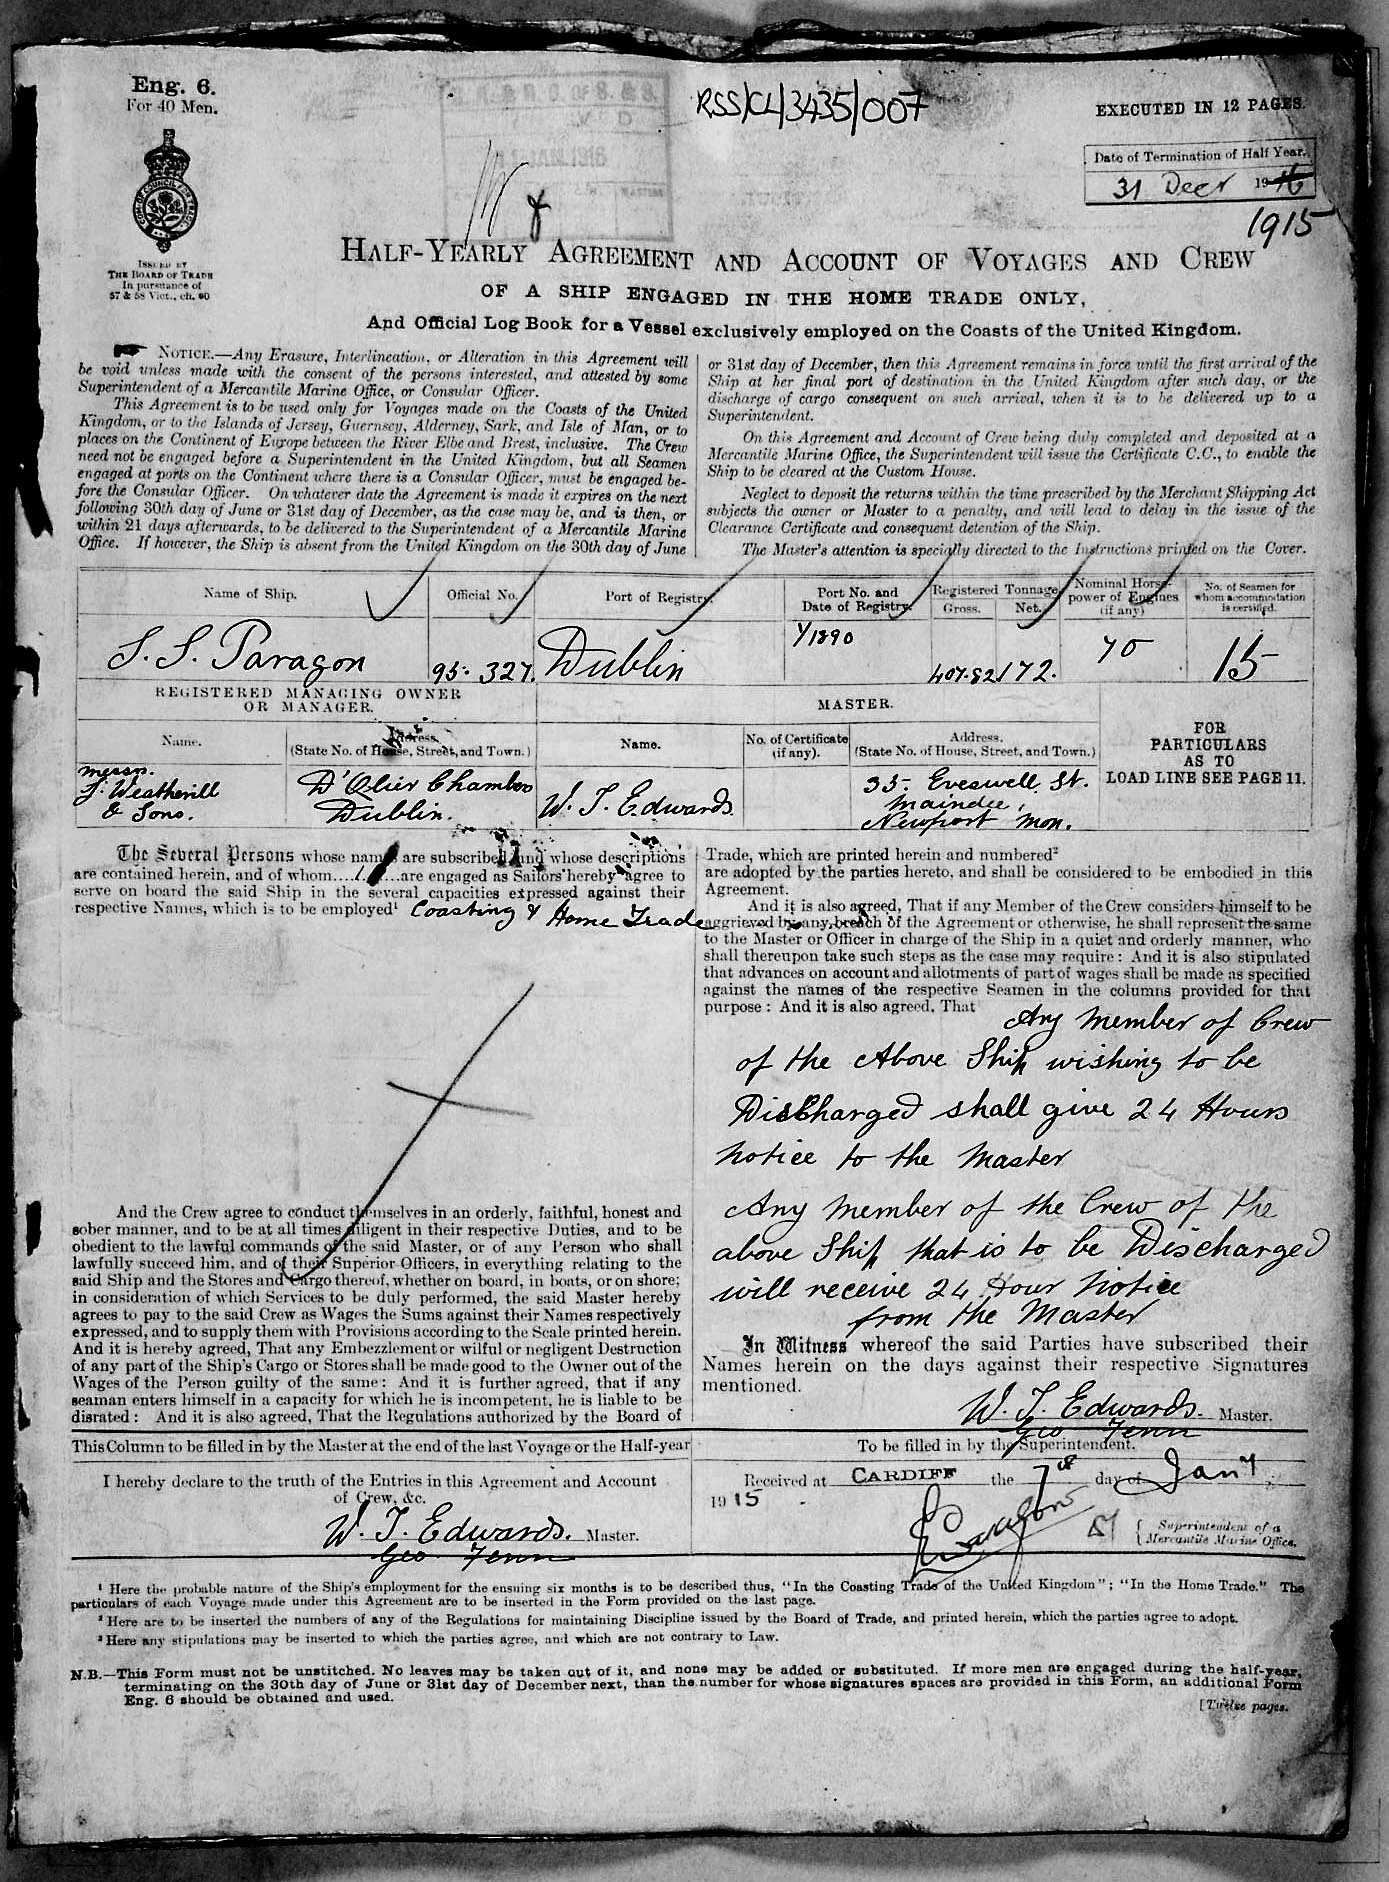 Eng. 6.
For 40 Men.
RSS/CL/3435/007
EXECUTED IN 12 PAGES.
Date of Termination of Half Year.
31 Decr 1916
1915
JAN. 1916
ISSUED BY
THE BOARD OF TRADE
In pursuance of
57 & 58 Vict., ch. 60
HALF-YEARLY AGREEMENT AND ACCOUNT OF VOYAGES AND CREW
OF A SHIP ENGAGED IN THE HOME TRADE ONLY,
And Official Log Book for a Vessel exclusively employed on the Coasts of the United Kingdom.
NOTICE.—Any Erasure, Interlineation, or Alteration in this Agreement will
be void unless made with the consent of the persons interested, and attested by some
Superintendent of a Mercantile Marine Office, or Consular Officer.
This Agreement is to be used only for Voyages made on the Coasts of the United
Kingdom, or to the Islands of Jersey, Guernsey, Alderney, Sark, and Isle of Man, or to
places on the Continent of Europe between the River Elbe and Brest, inclusive. The Crew
need not be engaged before a Superintendent in the United Kingdom, but all Seamen
engaged at ports on the Continent where there is a Consular Officer, must be engaged be-
fore the Consular Officer. On whatever date the Agreement is made it expires on the next
following 30th day of June or 31st day of December, as the case may be, and is then, or
within 21 days afterwards, to be delivered to the Superintendent of a Mercantile Marine
Office. If however, the Ship is absent from the United Kingdom on the 30th day of June
or 31st day of December, then this Agreement remains in force until the first arrival of the
Ship at her final port of destination in the United Kingdom after such day, or the
discharge of cargo consequent on such arrival, when it is to be delivered up to a
Superintendent.
On this Agreement and Account of Crew being duly completed and deposited at a
Mercantile Marine Office, the Superintendent will issue the Certificate C.C., to enable the
Ship to be cleared at the Custom House.
Neglect to deposit the returns within the time prescribed by the Merchant Shipping Act
subjects the owner or Master to a penalty, and will lead to delay in the issue of the
Clearance Certificate and consequent detention of the Ship.
The Master's attention is specially directed to the Instructions printed on the Cover.
Name of Ship. Official No. Port of Registry. Port No. and Date of Registry. Registered Tonnage Gross. Net. Nominal Horse-power of Engines (if any) No. of Seamen for whom accommodation is certified.
S. S. Paragon 95. 327. Dublin 1/1890 407.82 172. 70 15
REGISTERED MANAGING OWNER
OR MANAGER.
MASTER.
Name. Address. (State No. of House, Street, and Town.) Name. No. of Certificate (if any). Address. (State No. of House, Street, and Town.)
FOR
PARTICULARS
AS TO
LOAD LINE SEE PAGE 11.
Messrs. D'Olier Chambers W. T. Edwards 35 Eveswell St.
J. Weatherill Dublin. Maindee,
& Sons. Newport Mon.
The Several Persons whose names are subscribed and whose descriptions
are contained herein, and of whom are engaged as Sailors hereby agree to
serve on board the said Ship in the several capacities expressed against their
respective Names, which is to be employed¹ Coasting & Home Trade
And the Crew agree to conduct themselves in an orderly, faithful, honest and
sober manner, and to be at all times diligent in their respective Duties, and to be
obedient to the lawful commands of the said Master, or of any Person who shall
lawfully succeed him, and of their Superior Officers, in everything relating to the
said Ship and the Stores and Cargo thereof, whether on board, in boats, or on shore;
in consideration of which Services to be duly performed, the said Master hereby
agrees to pay to the said Crew as Wages the Sums against their Names respectively
expressed, and to supply them with Provisions according to the Scale printed herein.
And it is hereby agreed, That any Embezzlement or wilful or negligent Destruction
of any part of the Ship's Cargo or Stores shall be made good to the Owner out of the
Wages of the Person guilty of the same: And it is further agreed, that if any
seaman enters himself in a capacity for which he is incompetent, he is liable to be
disrated: And it is also agreed, That the Regulations authorized by the Board of
Trade, which are printed herein and numbered²
are adopted by the parties hereto, and shall be considered to be embodied in this
Agreement.
And it is also agreed, That if any Member of the Crew considers himself to be
aggrieved by any breach of the Agreement or otherwise, he shall represent the same
to the Master or Officer in charge of the Ship in a quiet and orderly manner, who
shall thereupon take such steps as the case may require: And it is also stipulated
that advances on account and allotments of part of wages shall be made as specified
against the names of the respective Seamen in the columns provided for that
purpose: And it is also agreed, That Any Member of Crew
of the Above Ship wishing to be
Discharged shall give 24 Hours
notice to the Master
Any Member of the Crew of the
above Ship that is to be Discharged
will receive 24 Hour Notice
from the Master
In Witness whereof the said Parties have subscribed their
Names herein on the days against their respective Signatures
mentioned.
W. T. Edwards. Master.
Geo Fenn
This Column to be filled in by the Master at the end of the last Voyage or the Half-year
I hereby declare to the truth of the Entries in this Agreement and Account
of Crew, &c.
W. T. Edwards. Master.
Geo. Fenn
To be filled in by the Superintendent.
Received at CARDIFF the 7th day of Jany
1915
Superintendent of a
Mercantile Marine Office.
¹ Here the probable nature of the Ship's employment for the ensuing six months is to be described thus, "In the Coasting Trade of the United Kingdom"; "In the Home Trade." The
particulars of each Voyage made under this Agreement are to be inserted in the Form provided on the last page.
² Here are to be inserted the numbers of any of the Regulations for maintaining Discipline issued by the Board of Trade, and printed herein, which the parties agree to adopt.
³ Here any stipulations may be inserted to which the parties agree, and which are not contrary to Law.
N.B.—This Form must not be unstitched. No leaves may be taken out of it, and none may be added or substituted. If more men are engaged during the half-year,
terminating on the 30th day of June or 31st day of December next, than the number for whose signatures spaces are provided in this Form, an additional Form
Eng. 6 should be obtained and used.
[Twelve pages.